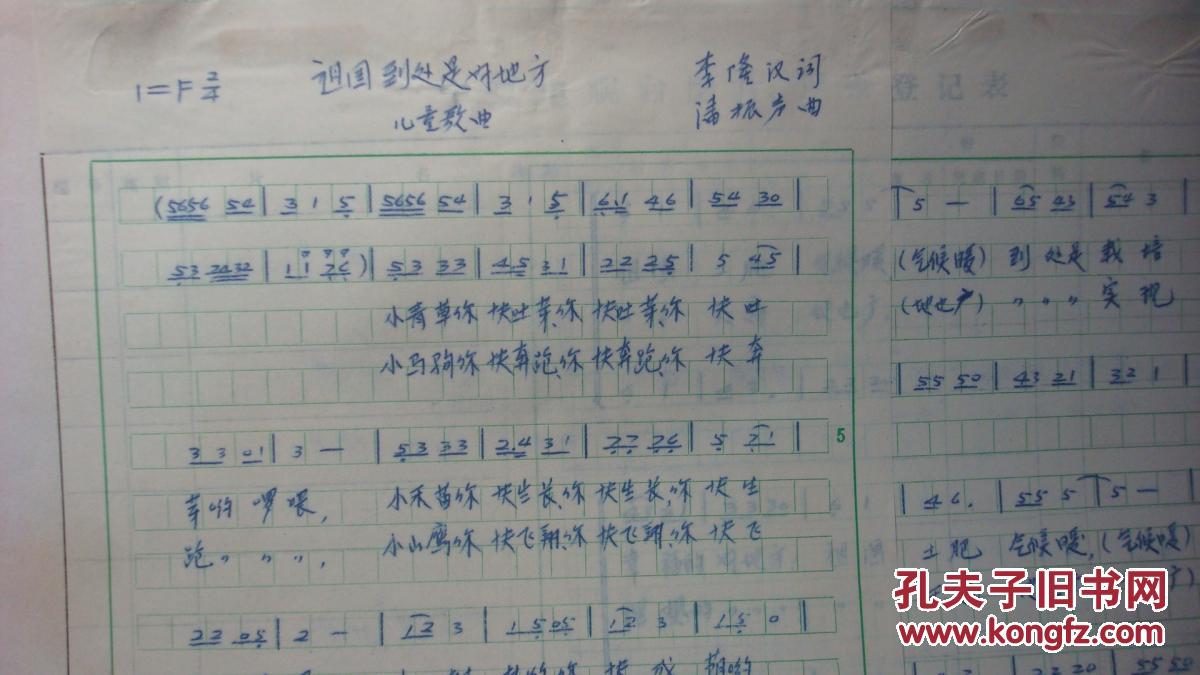 1=F 2/4 祖国到处是好地方 李隆汉词
儿童歌曲 潘振声曲
登记表
(5656 54 | 3 1 5 | 5656 54 | 3 1 5 | 61 46 | 54 30 |
53 2432 | 11 76) | 53 33 | 45 31 | 22 25 | 5 45 |
小青草你 快吐芽,你 快吐芽,你 快吐
小马驹你 快奔跑,你 快奔跑,你 快奔
33 01 | 3 — | 53 33 | 24 31 | 77 76 | 5 71 |
5
芽哟啰喂, 小禾苗你 快生长,你 快生长,你 快生
跑〃〃〃, 小山鹰你 快飞翔,你 快飞翔,你 快飞
22 05 | 2 — | 12 3 | 15 05 | 12 3 | 15 0 |
5 — | 65 43 | 54 3
(气候暖) 到处是栽培
〃〃〃实现
| 55 50 | 43 21 | 32 1
| 46. | 55 5 | 5 —
土肥 气候暖,(气候暖)
孔夫子旧书网
www.kongfz.com